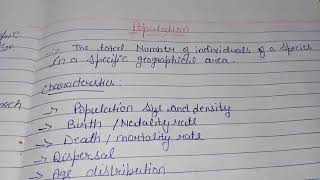 Population
→ The total Number of individuals of a species
in a specific geographical area.
Characteristics :
→ Population size and density
→ Birth / Natality rate
→ Death / mortality rate
→ Dispersal
→ Age distribution